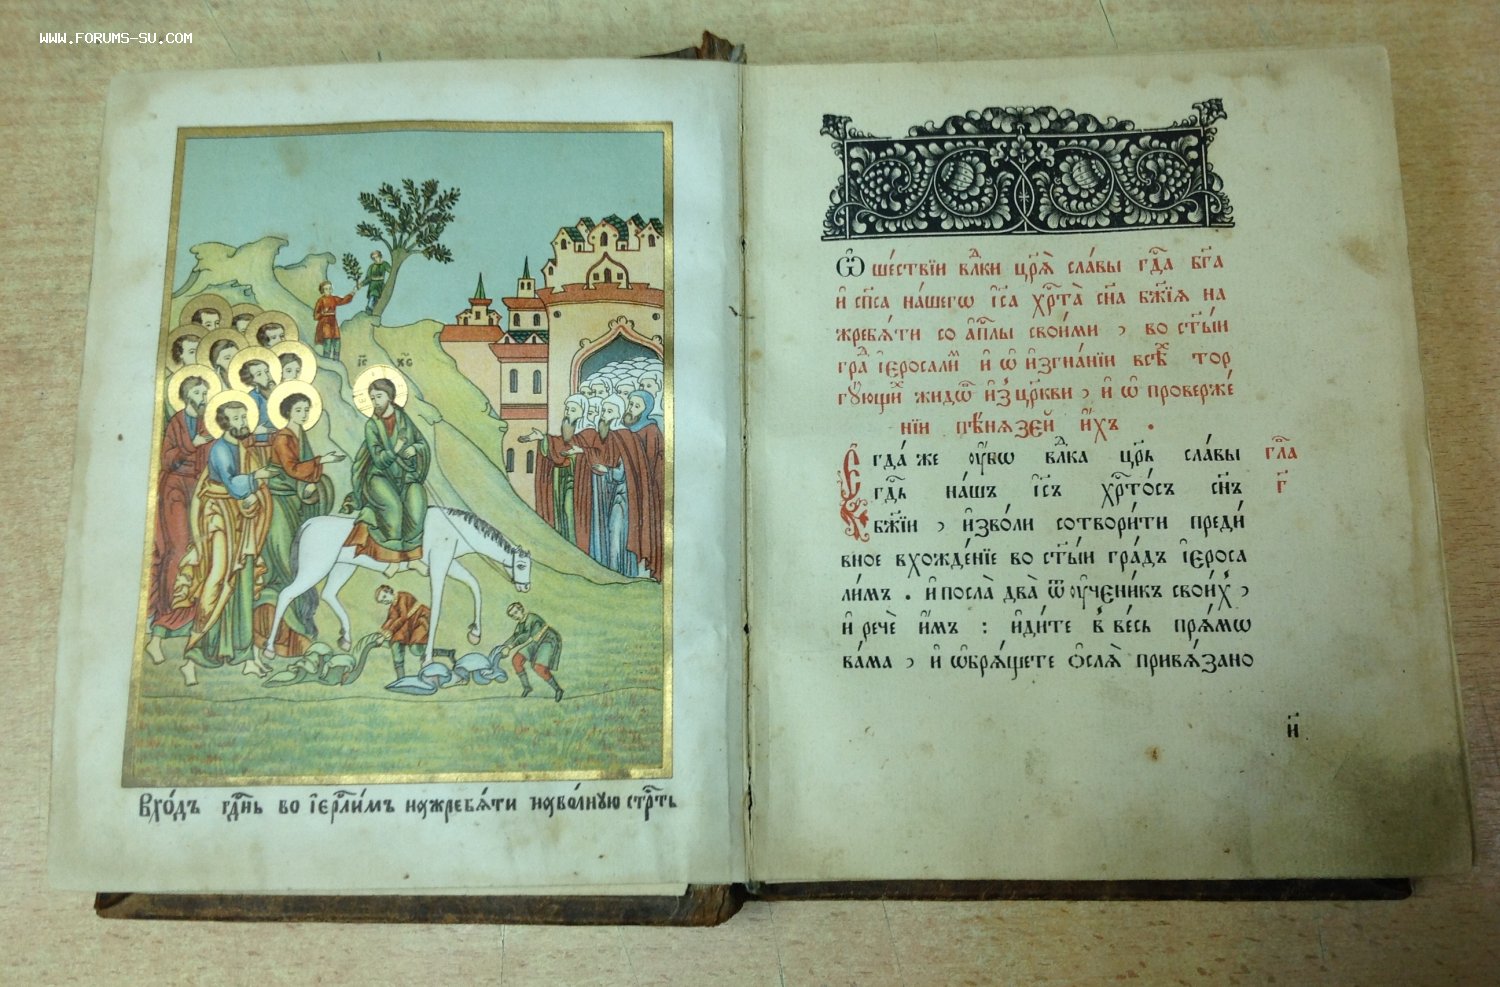 WWW.FORUMS-SU.COM
І҃С Х҃С
Вхо́дъ гд҇нь во і҆ерⷭ҇ли́мъ нажребѧ́ти наво́лную стрⷭ҇ть
Ѡ҆ ше́ствїи влⷣки цр҃ѧ̀ сла́вы гдⷭ҇а бг҃а
и҆ сп҃са на́шегѡ і҆с҃а хрⷭ҇та̀ сн҃а бж҃їѧ на
жребѧ́ти со а҆пⷭ҇лы свои́ми , во ст҃ы́и
граⷣ і҆еросали́м и҆ ѡ҆ и҆згна́нїи всѣⷯ тор
гꙋ́ющиⷯ жидѡ́в и҆з̾ цр҃кви , и҆ ѡ҆ проверже́
нїи пѣ́нѧзей и҆́хъ .
Е҆гда́ же ᲂу҆́бѡ влⷣка цр҃ь сла́вы гла
гдⷭ҇ь на́шъ і҆с҃ъ хрⷭ҇то́съ сн҃ъ г҃
бж҃їи , и҆зво́ли сотвори́ти преди́
вное вхожде́нїе во ст҃ы́и гра́дъ і҆ероса
ли́мъ . и҆ посла̀ два̀ ѿ ᲂу҆чени́къ свои́хъ ,
и҆ речѐ и҆̀мъ : и҆ди́те в̾ ве́сь прѧ́мѡ
ва́ма , и҆ ѡ҆брѧ́щете ѻ҆слѧ̀ привѧ́зано
и҃